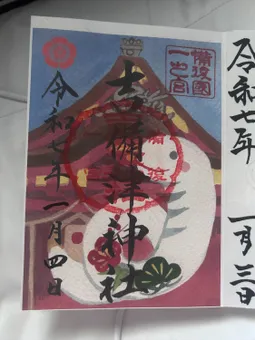 備後國
一之宮
吉備津神社
備後
令和七年一月四日
令和七年
一月三日